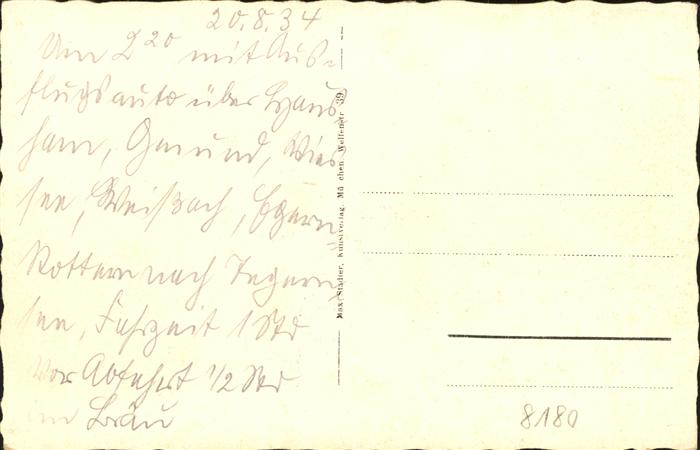 20.8.34
Um 2 20 mit Aus-
flugsauto über Haus-
ham, Gmund, Wies-
see, Weißach, Egern-
Rottern nach Tegern-
see, Fahrzeit 1 Std
Vor Abfahrt 1/2 Std
im Bräu
Max Stadler, Kunstverlag, Mü chen, Welfenstr 39
8180